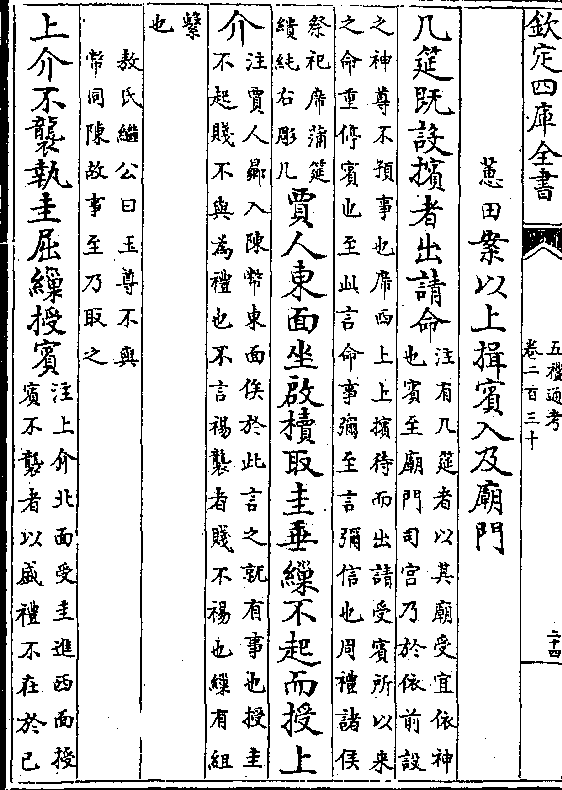 欽定四庫全書
五禮通考
卷二百三十
二十四
蕙田案以上揖賓入及廟門
几筵既設擯者出請命
注有几筵者以其廟受宜依神
也賓至廟門司宮乃於依前設
之神尊不預事也席西上上擯待而出請受賓所以来
之命重停賓也至此言命事彌至言彌信也周禮諸侯
祭祀席蒲筵
繢純右彫几
賈人東面坐啟櫝取圭垂繅不起而授上
介
注賈人鄉入陳幣東面俟於此言之就有事也授圭
不起賤不與為禮也不言裼襲者賤不裼也繅有組
繫
也
敖氏繼公曰玉尊不與
幣同陳故事至乃取之
上介不襲執圭屈繅授賓
注上介北面受圭進西面授
賓不襲者以盛禮不在於己